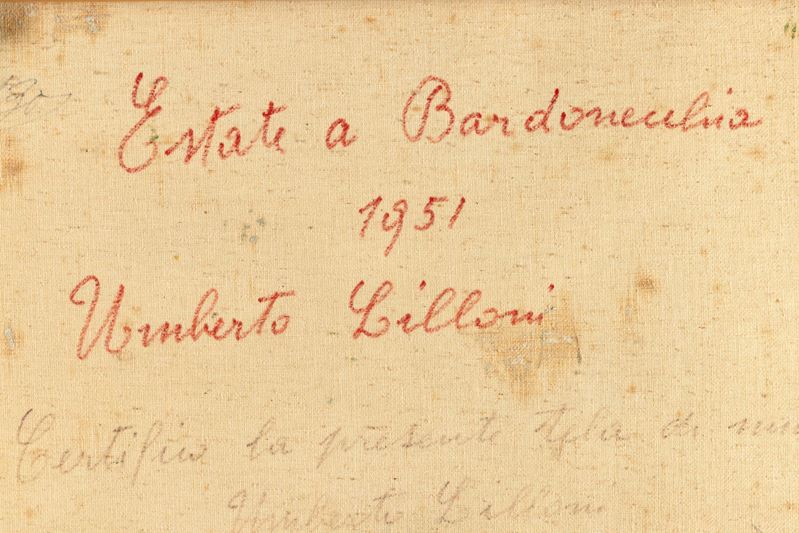 Estate a Bardonecchia
1951
Umberto Lilloni
Certifico la presente tela di
Umberto Lilloni